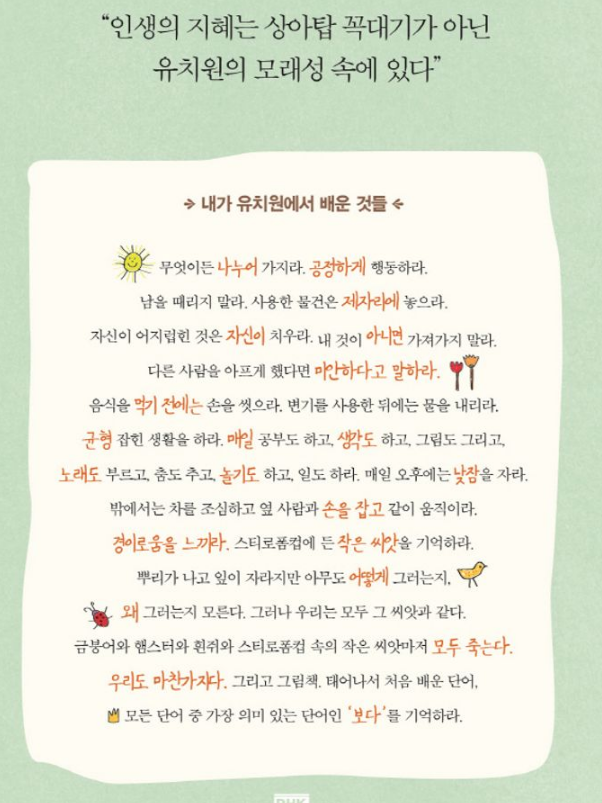 “인생의 지혜는 상아탑 꼭대기가 아닌
유치원의 모래성 속에 있다”
내가 유치원에서 배운 것들
무엇이든 나누어 가지라. 공정하게 행동하라.
남을 때리지 말라. 사용한 물건은 제자리에 놓으라.
자신이 어지럽힌 것은 자신이 치우라. 내 것이 아니면 가져가지 말라.
다른 사람을 아프게 했다면 미안하다고 말하라.
음식을 먹기 전에는 손을 씻으라. 변기를 사용한 뒤에는 물을 내리라.
균형 잡힌 생활을 하라. 매일 공부도 하고, 생각도 하고, 그림도 그리고,
노래도 부르고, 춤도 추고, 놀기도 하고, 일도 하라. 매일 오후에는 낮잠을 자라.
밖에서는 차를 조심하고 옆 사람과 손을 잡고 같이 움직이라.
경이로움을 느끼라. 스티로폼컵에 든 작은 씨앗을 기억하라.
뿌리가 나고 잎이 자라지만 아무도 어떻게 그러는지,
왜 그러는지 모른다. 그러나 우리는 모두 그 씨앗과 같다.
금붕어와 햄스터와 흰쥐와 스티로폼컵 속의 작은 씨앗마저 모두 죽는다.
우리도 마찬가지다. 그리고 그림책. 태어나서 처음 배운 단어,
모든 단어 중 가장 의미 있는 단어인 ‘보다’를 기억하라.